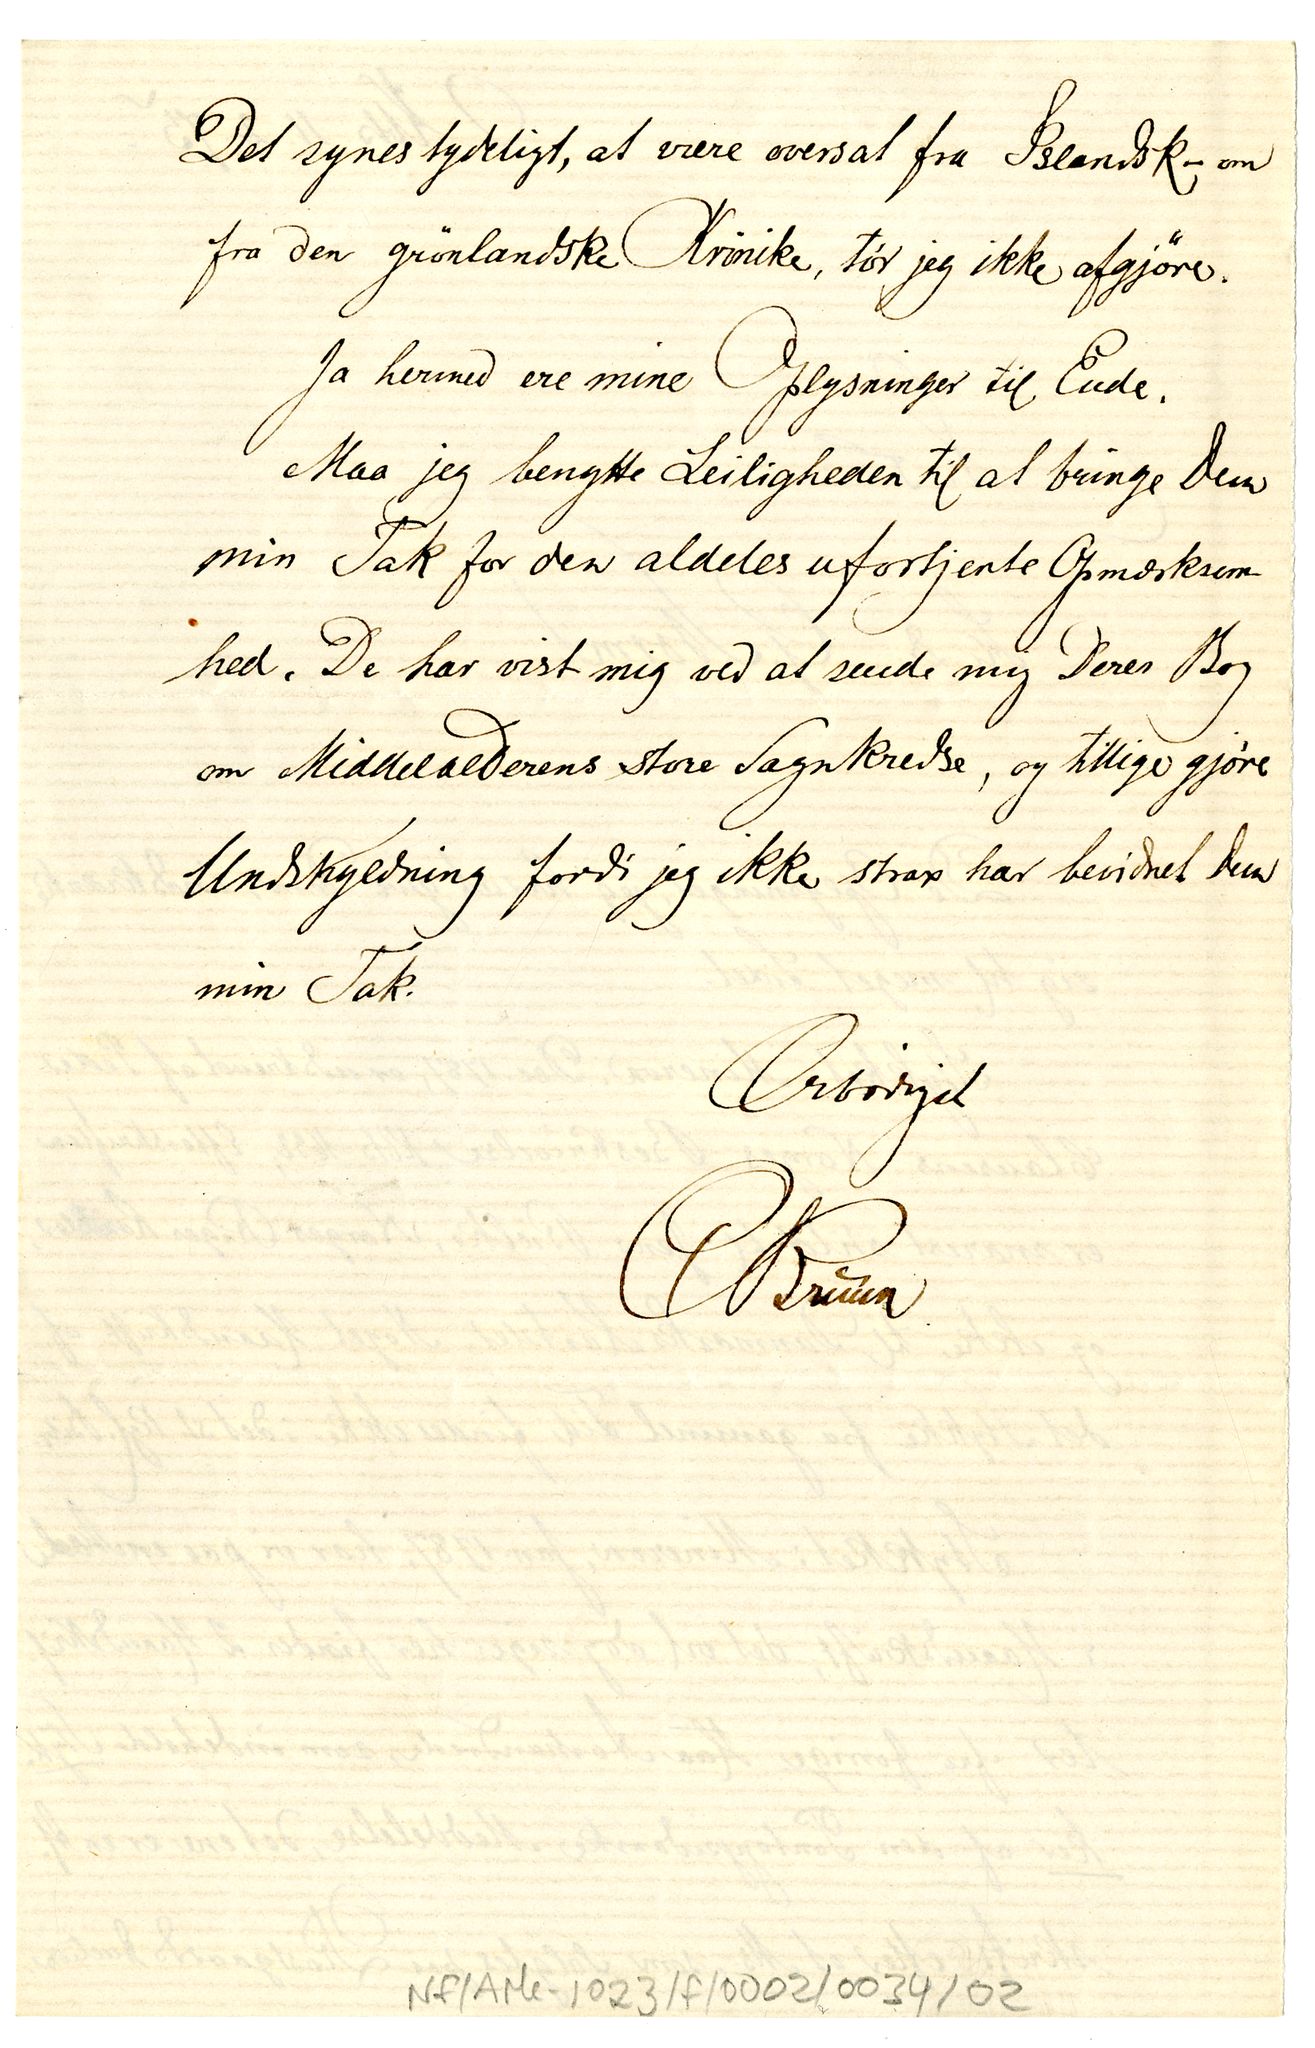 Det synes tydeligt, at være oversat fra Islandsk – om
fra den grönlandske Krönike, tör jeg ikke afgjöre.
Ja hermed ere mine Oplysninger til Ende.
Maa jeg benytte Leiligheden til at bringe Dem
min Tak for den aldeles ufortjente Opmærksom-
hed. De har vist mig ved at sende mig Deres Bog
om Middelalderens store Sagnkredse, og tillige gjöre
Undskyldning fordi jeg ikke strax har bevidnet Dem
min Tak.
Erbödigst
C Bruun
NF/AMe-1023/f/0002/0034/02